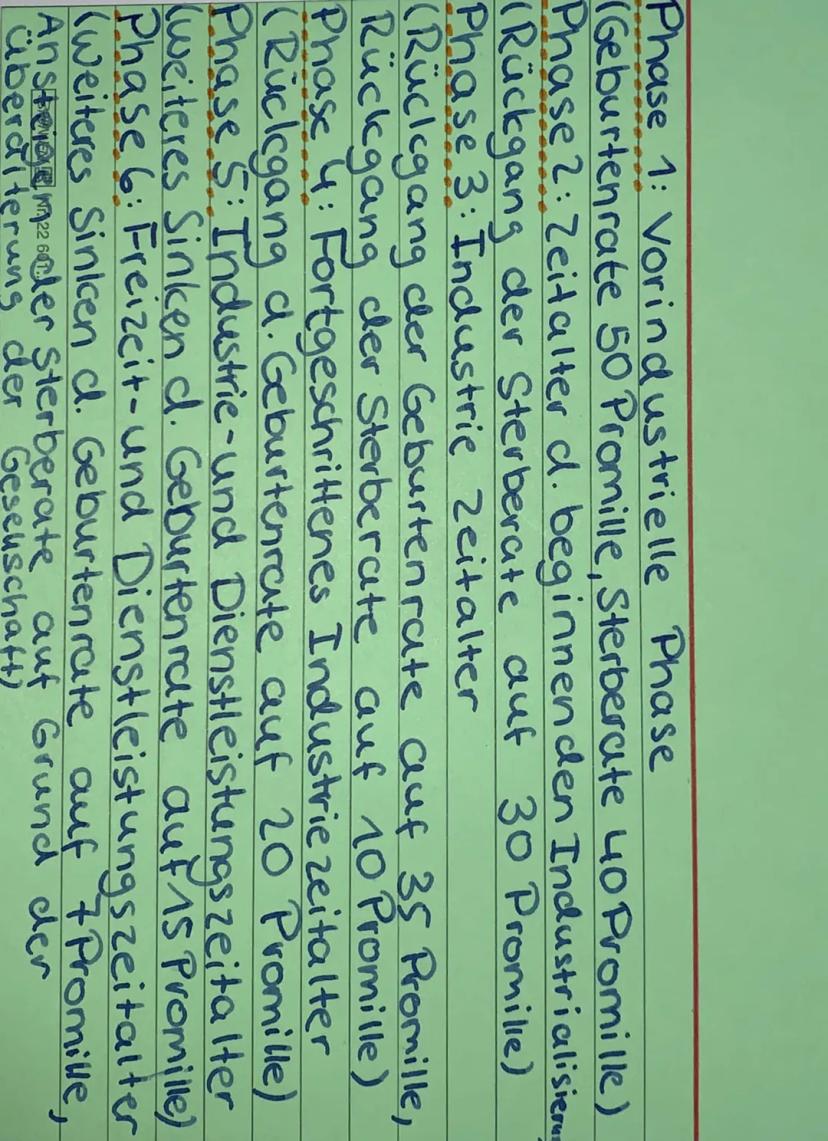 Phase 1: Vorindustrielle Phase
(Geburtenrate 50 Promille, Sterberate 40 Promille)
Phase 2: Zeitalter d. beginnenden Industrialisierun
(Rückgang der Sterberate auf 30 Promille)
Phase 3: Industrie zeitalter
(Rückgang der Geburtenrate auf 35 Promille,
Rückgang der Sterberate auf 10 Promille)
Phase 4: Fortgeschrittenes Industriezeitalter
(Rückgang d. Geburtenrate auf 20 Promille)
Phase 5: Industrie- und Dienstleistungszeitalter
(weiteres Sinken d. Geburtenrate auf 15 Promille)
Phase 6: Freizeit- und Dienstleistungszeitalter
(weiteres Sinken d. Geburtenrate auf 7 Promille,
Ansteigen der Sterberate auf Grund der
überalterung der Gesellschaft)